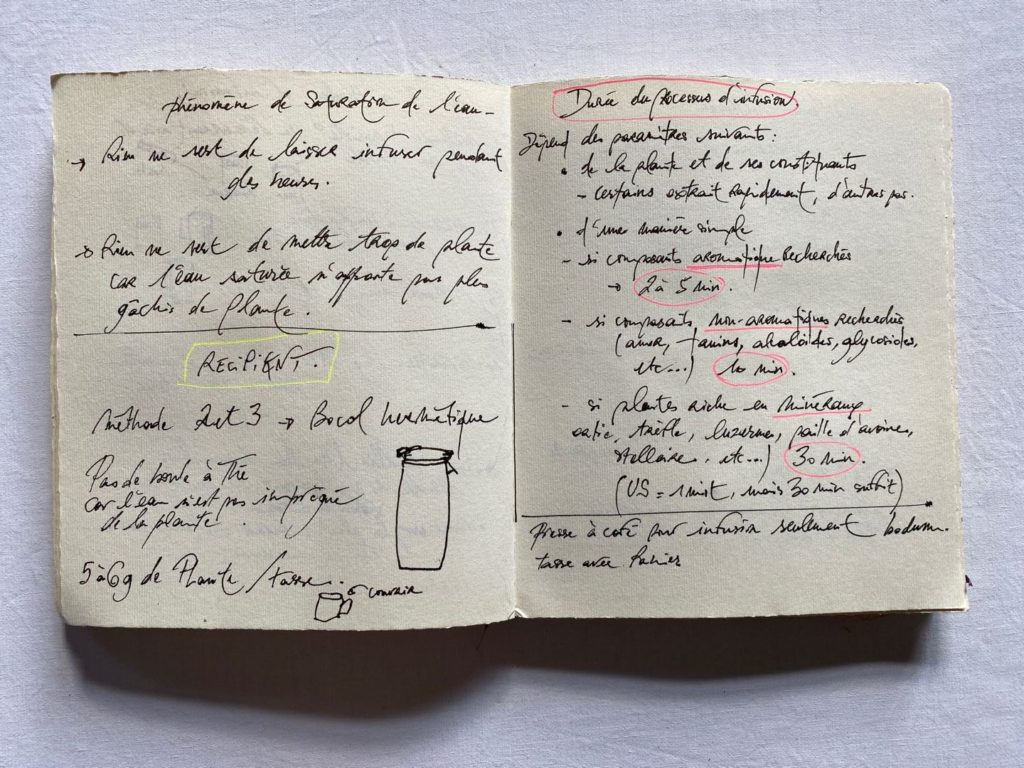 phénomène de Saturation de l'eau
→ Rien ne sert de laisser infuser pendant
des heures.
→ Rien ne sert de mettre trop de plante
car l'eau saturée n'apporte pas plus
gâchis de plante.
RECIPIENT.
méthode 2 et 3 → Bocal hermétique
Pas de boule à Thé
car l'eau n'est pas imprégné
de la plante.
5 à 6g de Plante / tasse.
Durée du processus d'infusion.
Dépend des paramètres suivants :
• de la plante et de ses constituants
- certains extrait rapidement, d'autres pas.
• d'une manière simple
- si composants aromatique recherchés
→ 2 à 5 min.
- si composants non-aromatiques recherchés
(amer, tanins, alcaloïdes, glycosides,
etc...) 10 min.
- si plantes riche en minéraux
ortie, trèfle, luzerne, paille d'avoine,
stellaire, etc...) 30 min.
(US = 1 nuit, mais 30 min suffit)
Presse à café pour infusion seulement bodum.
tasse avec Panier